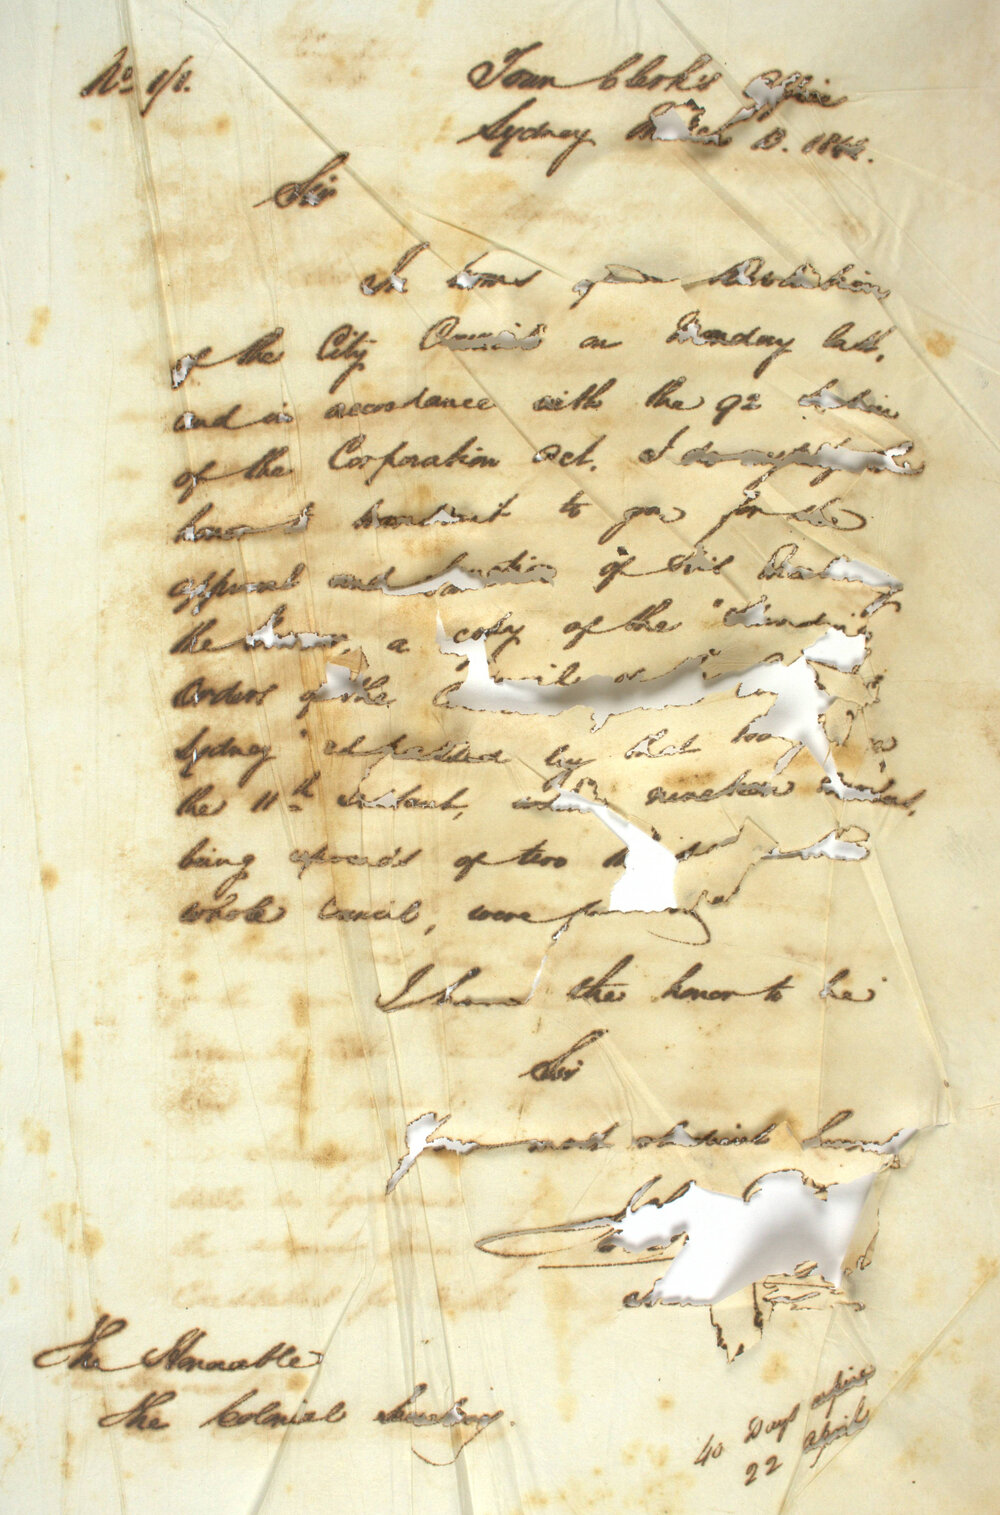 No 1/1.
Town Clerk's Office
Sydney March 13. 184
Sir
In terms of a Resolution
of the City Council on Monday last,
and in accordance with the 92 Section
of the Corporation Act. I do myself the
honor to transmit to you for the
approval and sanction of His Excellency
the Governor, a copy of the "Standing
Orders of the Council of the City of
Sydney" as passed by that body on
the 11th instant, when nineteen members,
being upwards of two thirds of the
whole Council, were present
I have the honor to be
Sir
Your most obedient Servant
Town Clerk
The Honorable
The Colonial Secretary.
40 Days expire
22 April